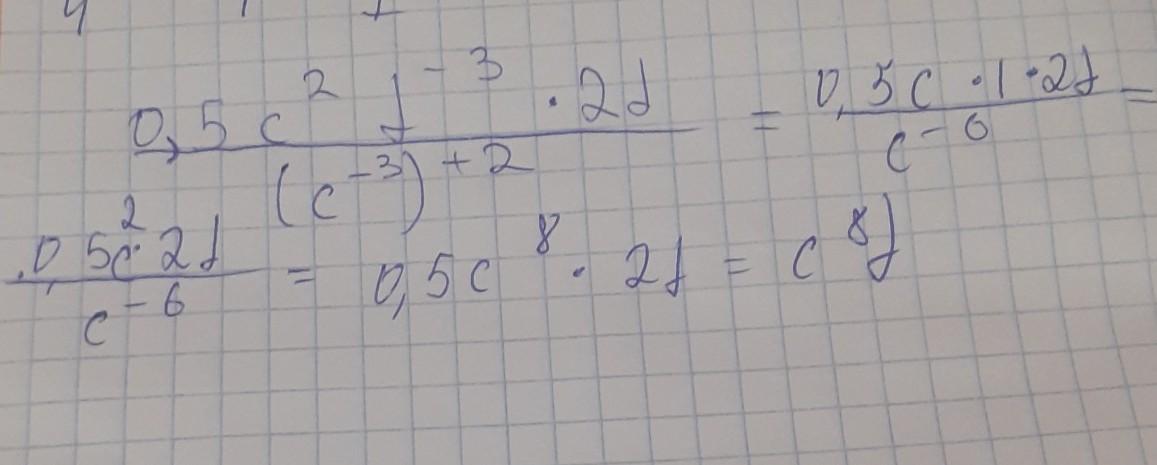 (0,5c² 1⁻³ · 2d) / (c⁻³)⁺² = (0,5c · 1 · 2d) / c⁻⁶ =
(0,5c² · 2d) / c⁻⁶ = 0,5c⁸ · 2d = c⁸d